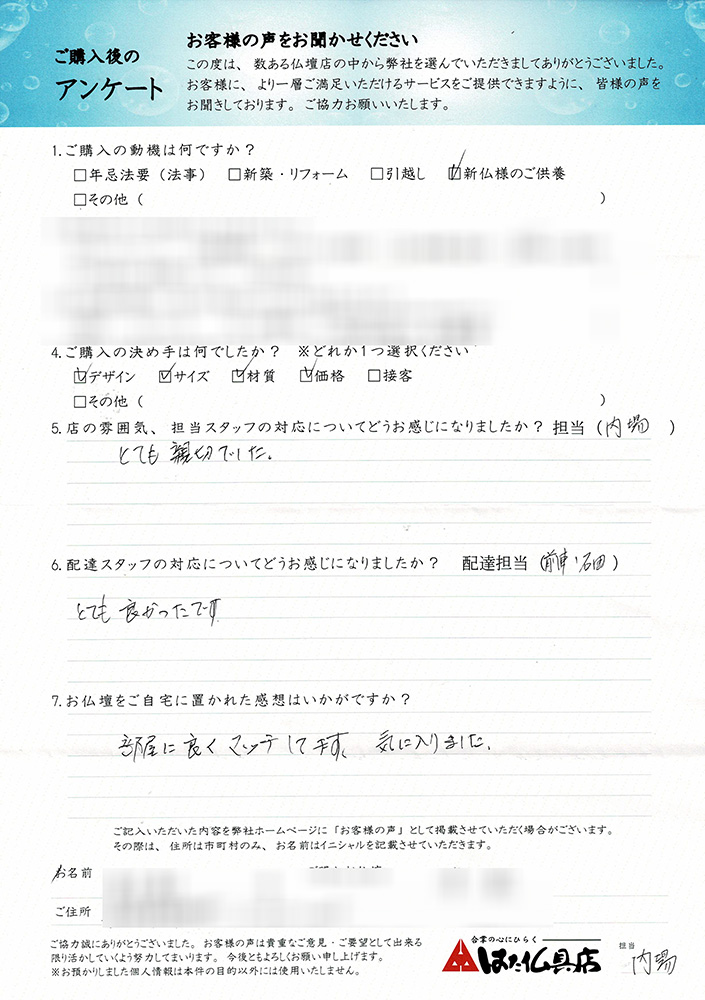 ご購入後の
アンケート
お客様の声をお聞かせください
この度は、数ある仏壇店の中から弊社を選んでいただきましてありがとうございました。
お客様に、より一層ご満足いただけるサービスをご提供できますように、皆様の声を
お聞きしております。ご協力お願いいたします。
1.ご購入の動機は何ですか?
□年忌法要(法事) □新築・リフォーム □引越し ☑新仏様のご供養
□その他( )
4.ご購入の決め手は何でしたか? ※どれか1つ選択ください
☑デザイン ☑サイズ ☑材質 ☑価格 □接客
□その他( )
5.店の雰囲気、担当スタッフの対応についてどうお感じになりましたか?担当(内場)
とても親切でした。
6.配達スタッフの対応についてどうお感じになりましたか? 配達担当(前東・石田)
とても良かったです
7.お仏壇をご自宅に置かれた感想はいかがですか?
部屋に良くマッチしてます。気に入りました。
ご記入いただいた内容を弊社ホームページに「お客様の声」として掲載させていただく場合がございます。
その際は、住所は市町村のみ、お名前はイニシャルを記載させていただきます。
お名前
ご住所
ご協力誠にありがとうございました。お客様の声は貴重なご意見・ご要望として出来る
限り活かしていくよう努力してまいります。今後ともよろしくお願い申し上げます。
※お預かりしました個人情報は本件の目的以外には使用いたしません。
合掌の心にひらく
はた仏具店
担当
内場